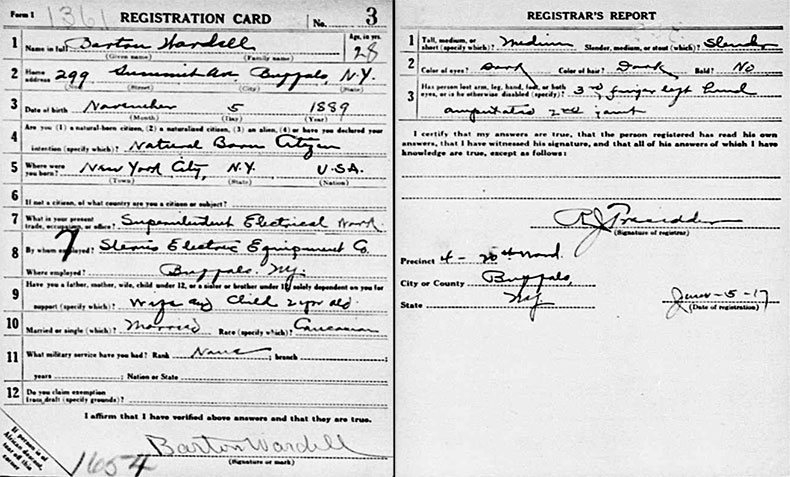 Form 1 1361 REGISTRATION CARD No. 3
1 Name in full Barton Wardell Age, in yrs. 28
(Given name) (Family name)
2 Home address 299 Summit Av. Buffalo, N.Y.
(No.) (Street) (City) (State)
3 Date of birth November 5 1889
(Month) (Day) (Year)
4 Are you (1) a natural-born citizen, (2) a naturalized citizen, (3) an alien, (4) or have you declared your
intention (specify which)? Natural Born Citizen
5 Where were you born? New York City, N.Y. U.S.A.
(Town) (State) (Nation)
6 If not a citizen, of what country are you a citizen or subject?
7 What is your present trade, occupation, or office? Superintendent Electrical Work
8 By whom employed? Stearns Electric Equipment Co.
Where employed? Buffalo. N.Y.
9 Have you a father, mother, wife, child under 12, or a sister or brother under 12, solely dependent on you for
support (specify which)? Wife and Child 2 yr old
10 Married or single (which)? Married Race (specify which)? Caucasian
11 What military service have you had? Rank None ; branch ;
years ; Nation or State
12 Do you claim exemption from draft (specify grounds)?
I affirm that I have verified above answers and that they are true.
Barton Wardell
(Signature or mark)
If person is of African descent, tear off this corner
1654
REGISTRAR'S REPORT
1 Tall, medium, or short (specify which)? Medium Slender, medium, or stout (which)? Slender
2 Color of eyes? Dark Color of hair? Dark Bald? No
3 Has person lost arm, leg, hand, foot, or both eyes, or is he otherwise disabled (specify)? 3rd finger left hand
amputated 2nd joint
I certify that my answers are true, that the person registered has read his own
answers, that I have witnessed his signature, and that all of his answers of which I have
knowledge are true, except as follows:
R J
(Signature of registrar)
Precinct 4 - 20th Ward.
City or County Buffalo,
State N.Y.
June-5-17
(Date of registration)